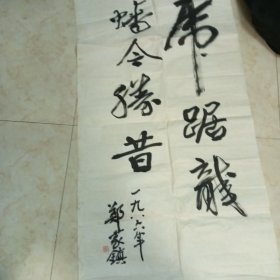 虎踞龍
蟠今勝昔
一九八六年
鄭家鎮